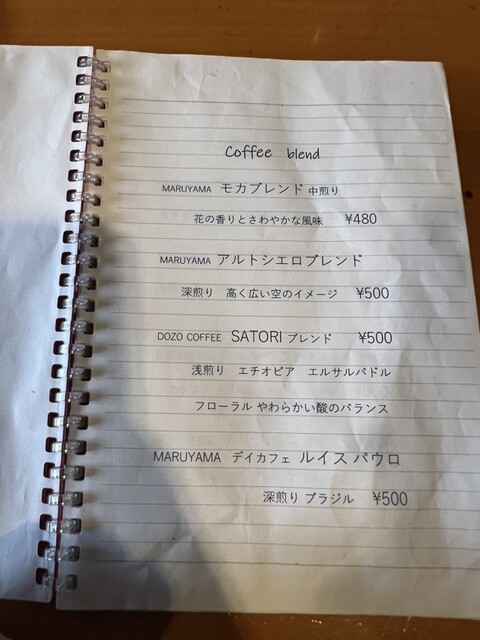 Coffee blend
MARUYAMA モカブレンド 中煎り
花の香りとさわやかな風味 ¥480
MARUYAMA アルトシエロブレンド
深煎り 高く広い空のイメージ ¥500
DOZO COFFEE SATORI ブレンド ¥500
浅煎り エチオピア エルサルバドル
フローラル やわらかい酸のバランス
MARUYAMA デイカフェ ルイス パウロ
深煎り ブラジル ¥500